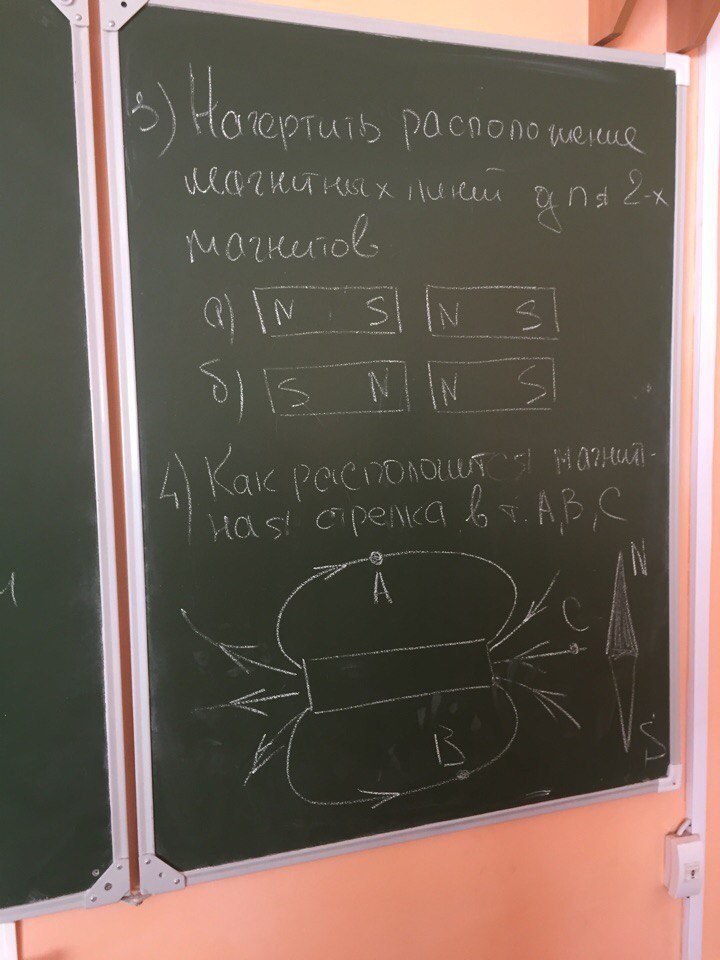 3) Начертить расположение
магнитных линий для 2-х
магнитов
а) N S N S
б) S N N S
4) Как расположится магнит-
ная стрелка в т. А, В, С
A
C
N
B
S